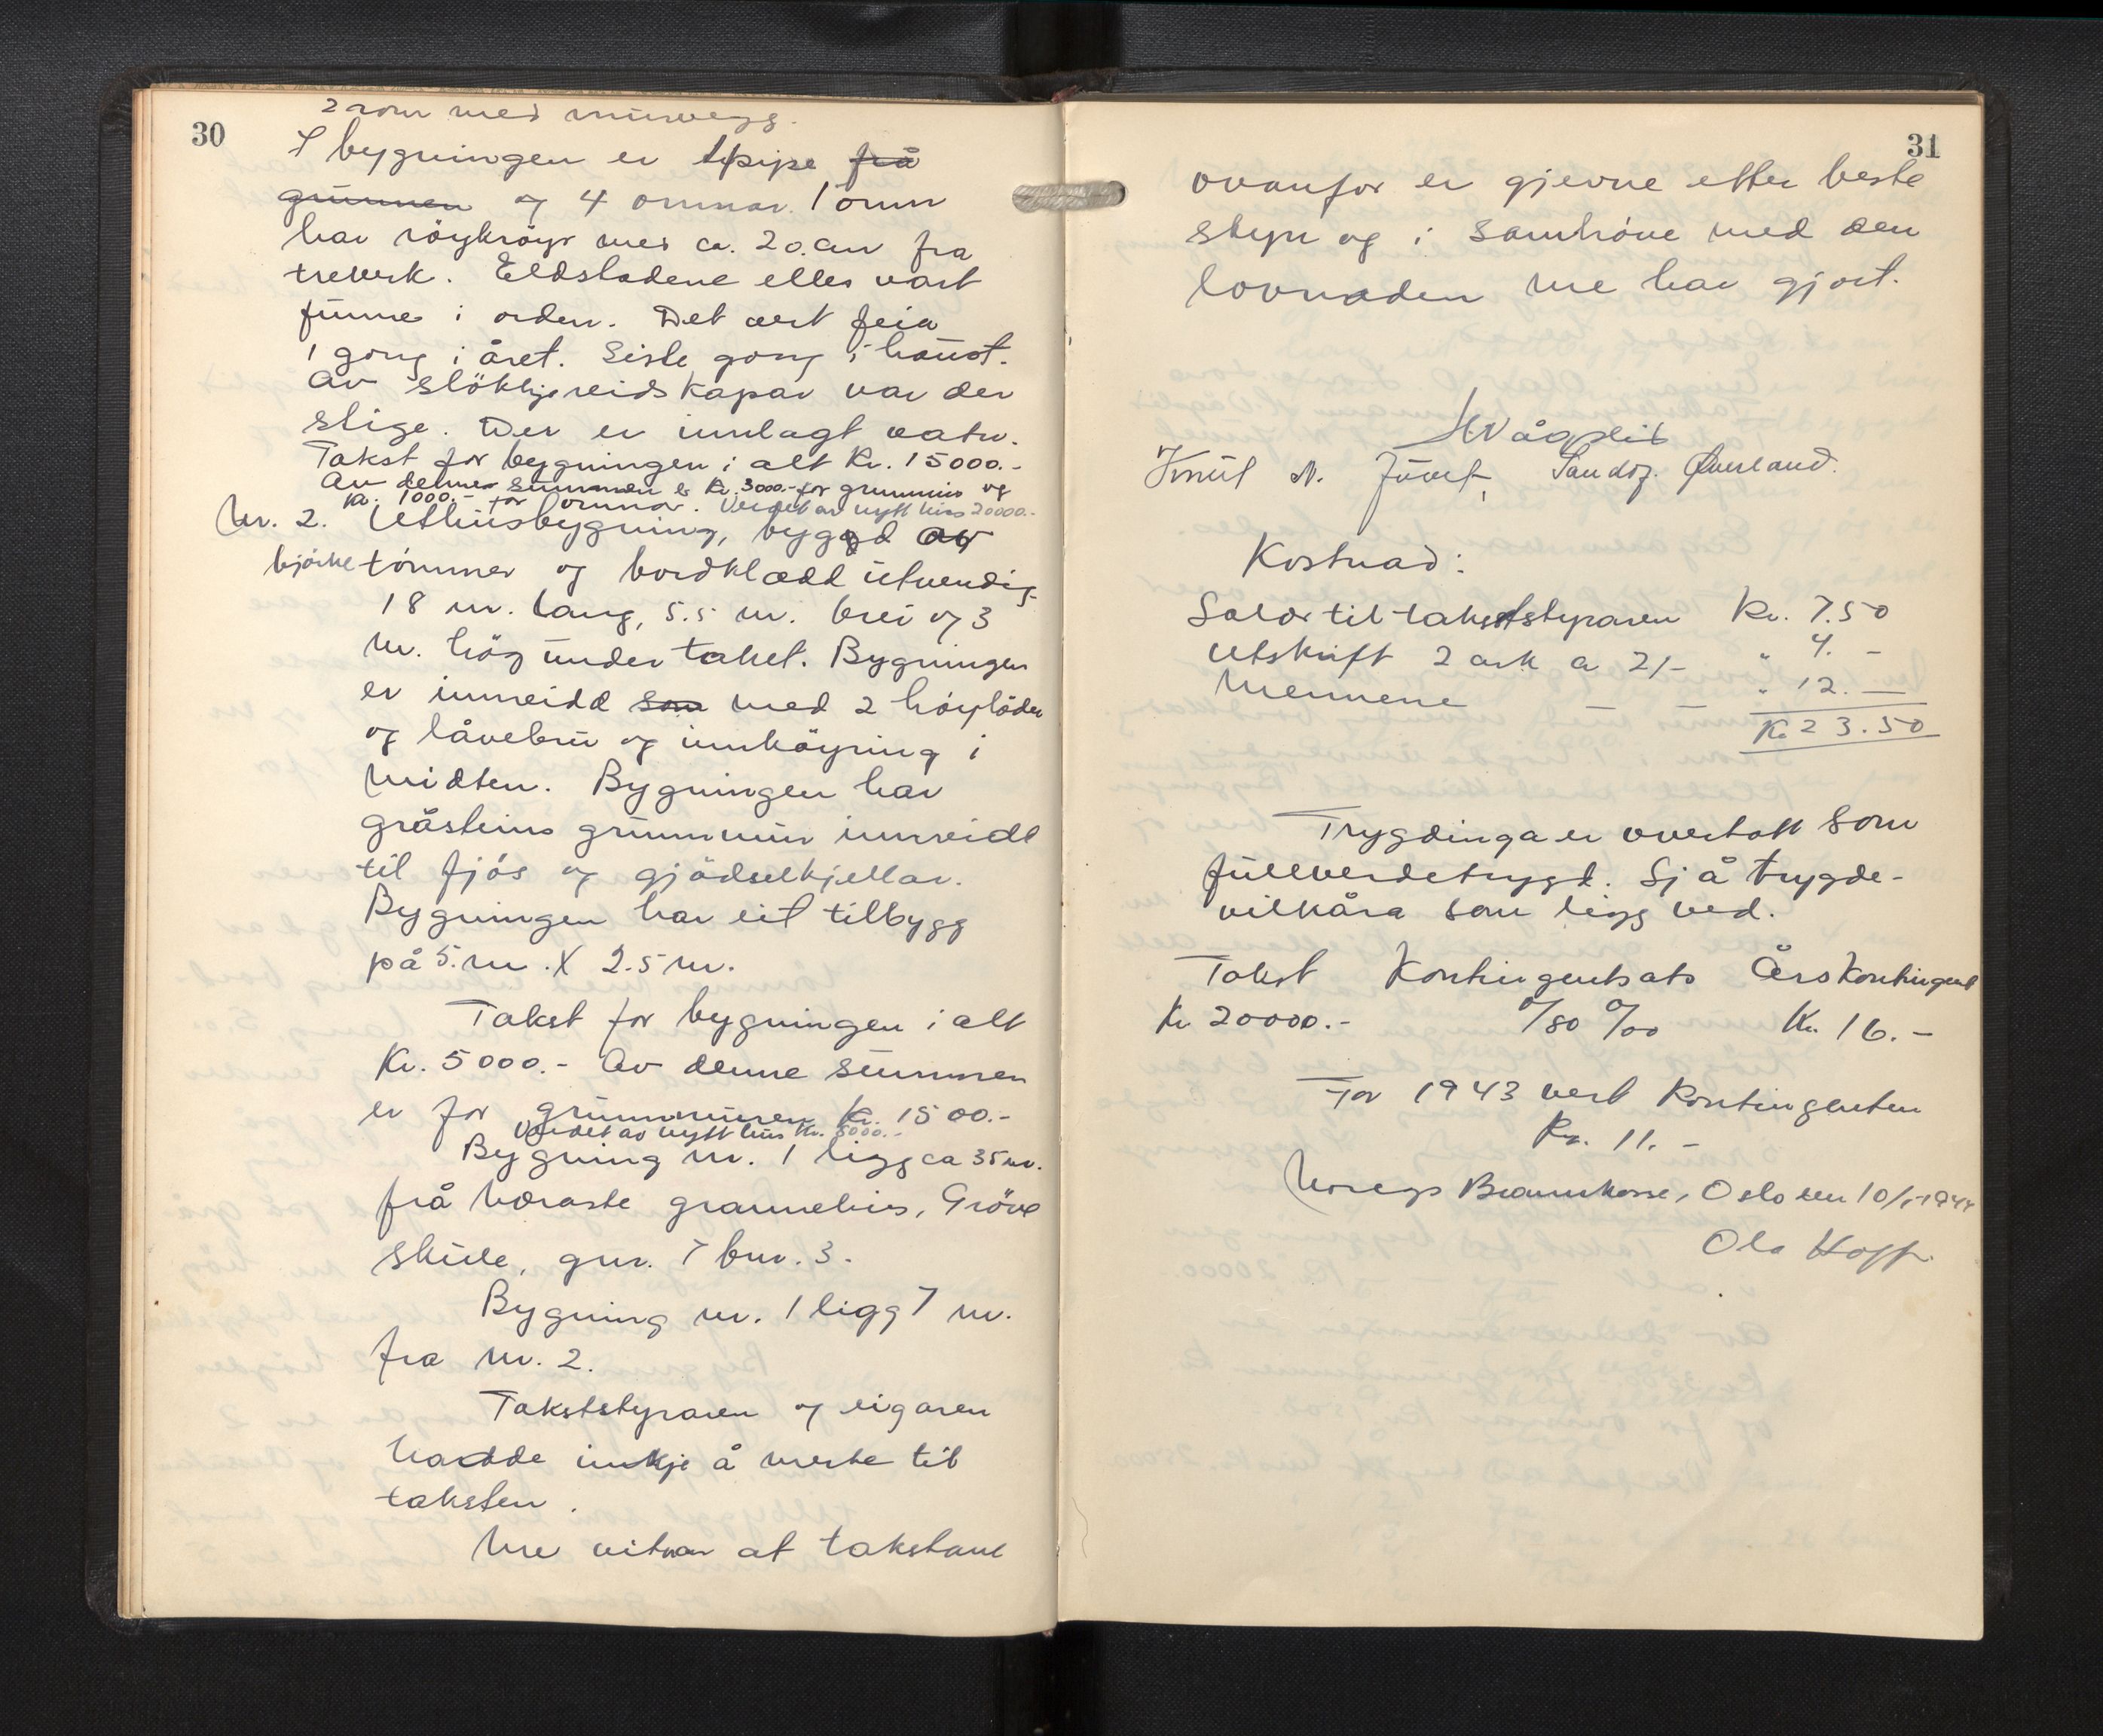 30
2 rom med murvegg.
I bygningen er 1 pipe frå
grunnen og 4 omnar. 1 omn
har röykröyr med ca. 20 cm fra
treverk. Eldstadene elles vart
funne i orden. Det vert feia
1 gong i året. Siste gong i haust.
Av slökkjereidskapar var der
stige. Der er innlagt vatn.
Takst for bygningen i alt Kr. 15000.-
Av denne summen er Kr. 3000.- for grunnmur og
Kr. 1000.- for omnar. Verdet av nytt hus 20000.-
Nr. 2. Uthusbygning, bygd av
björketömmer og bordklædd utvendig
18 m. lang, 5.5 m. brei og 3
m. hög under taket. Bygningen
er innreidd som med 2 höylöder
og låvebru og innköyring i
midten. Bygningen har
gråsteins grunnmur innreidt
til fjös og gjödselkjellar.
Bygningen har eit tilbygg
på 5. m. X 2.5 m.
Takst for bygningen i alt
Kr. 5000.- Av denne summen
er for grunnmuren Kr. 1500.-
Verdet av nytt hus Kr. 8000.-
Bygning nr. 1 ligg ca 35 m.
frå næraste grannehus, Gröve
skule, gnr. 7 bnr. 3.
Bygning nr. 1 ligg 7 m.
fra nr. 2.
Takststyraren og eigaren
hadde innkje å merke til
taksten.
Me vitnar at takstane
31
ovanfor er gjevne etter beste
skyn og i samhöve med den
lovnaden me har gjort.
H Vågslid
Knut N. Juvet, Sandof. Øverland.
Kostnad:
Salær til takststyraren Kr. 7.50
Utskrift 2 ark a 2/- " 4. -
Mennene — — " 12. —
Kr 23.50
Trygdinga er overtatt som
fullverdetrygd. Sjå trygde-
vilkåra som ligg ved.
Takst Kontingentsats Årskontingent
Kr 20000.- 0/80 0/00 Kr. 16.-
For 1943 vert Kontingenten
Kr. 11. -
Noregs Brannkasse, Oslo den 10/1-1944
Ola Hoff